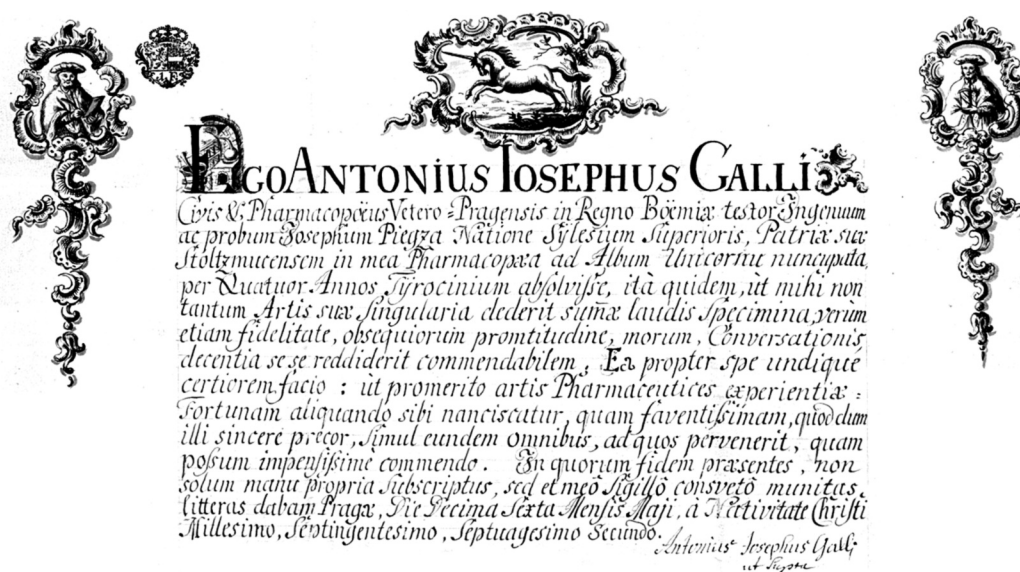 EGO ANTONIUS IOSEPHUS GALLI
Civis & Pharmacopœus Vetero-Pragensis in Regno Boëmiæ testor Ingenuum
ac probum Iosephum Piegza Natione Sylesium Superioris, Patriæ suæ
Stoltzmucensem in mea Pharmacopæa ad Album Unicornu nuncupata,
per Quatuor Annos Tyrocinium absolvisse, ità quidem, ùt mihi non
tantum Artis suæ Singularia dederit sum̄æ laudis Specimina, verùm
etiam fidelitate, obsequiorum promtitudine, morum, Conversationis
decentia se se reddiderit commendabilem, Ea propter spe undique
certiorem facio : ùt promerito artis Pharmaceutices experientiæ :
Fortunam aliquando sibi nanciscatur, quam faventissimam, quod dum
illi sincere precor, simul eundem omnibus, ad quos pervenerit, quam
possum impensissimè commendo. In quorum fidem præsentes, non
solum manu propria Subscriptus, sed et meô Sigillô consvetô munitas
litteras dabam Pragæ, Die Decima Sexta Mensis Maji, à Nativitate Christi
Millesimo, Septingentesimo, Septuagesimo Secundo.
Antonius Iosephus Galli
ut Supra